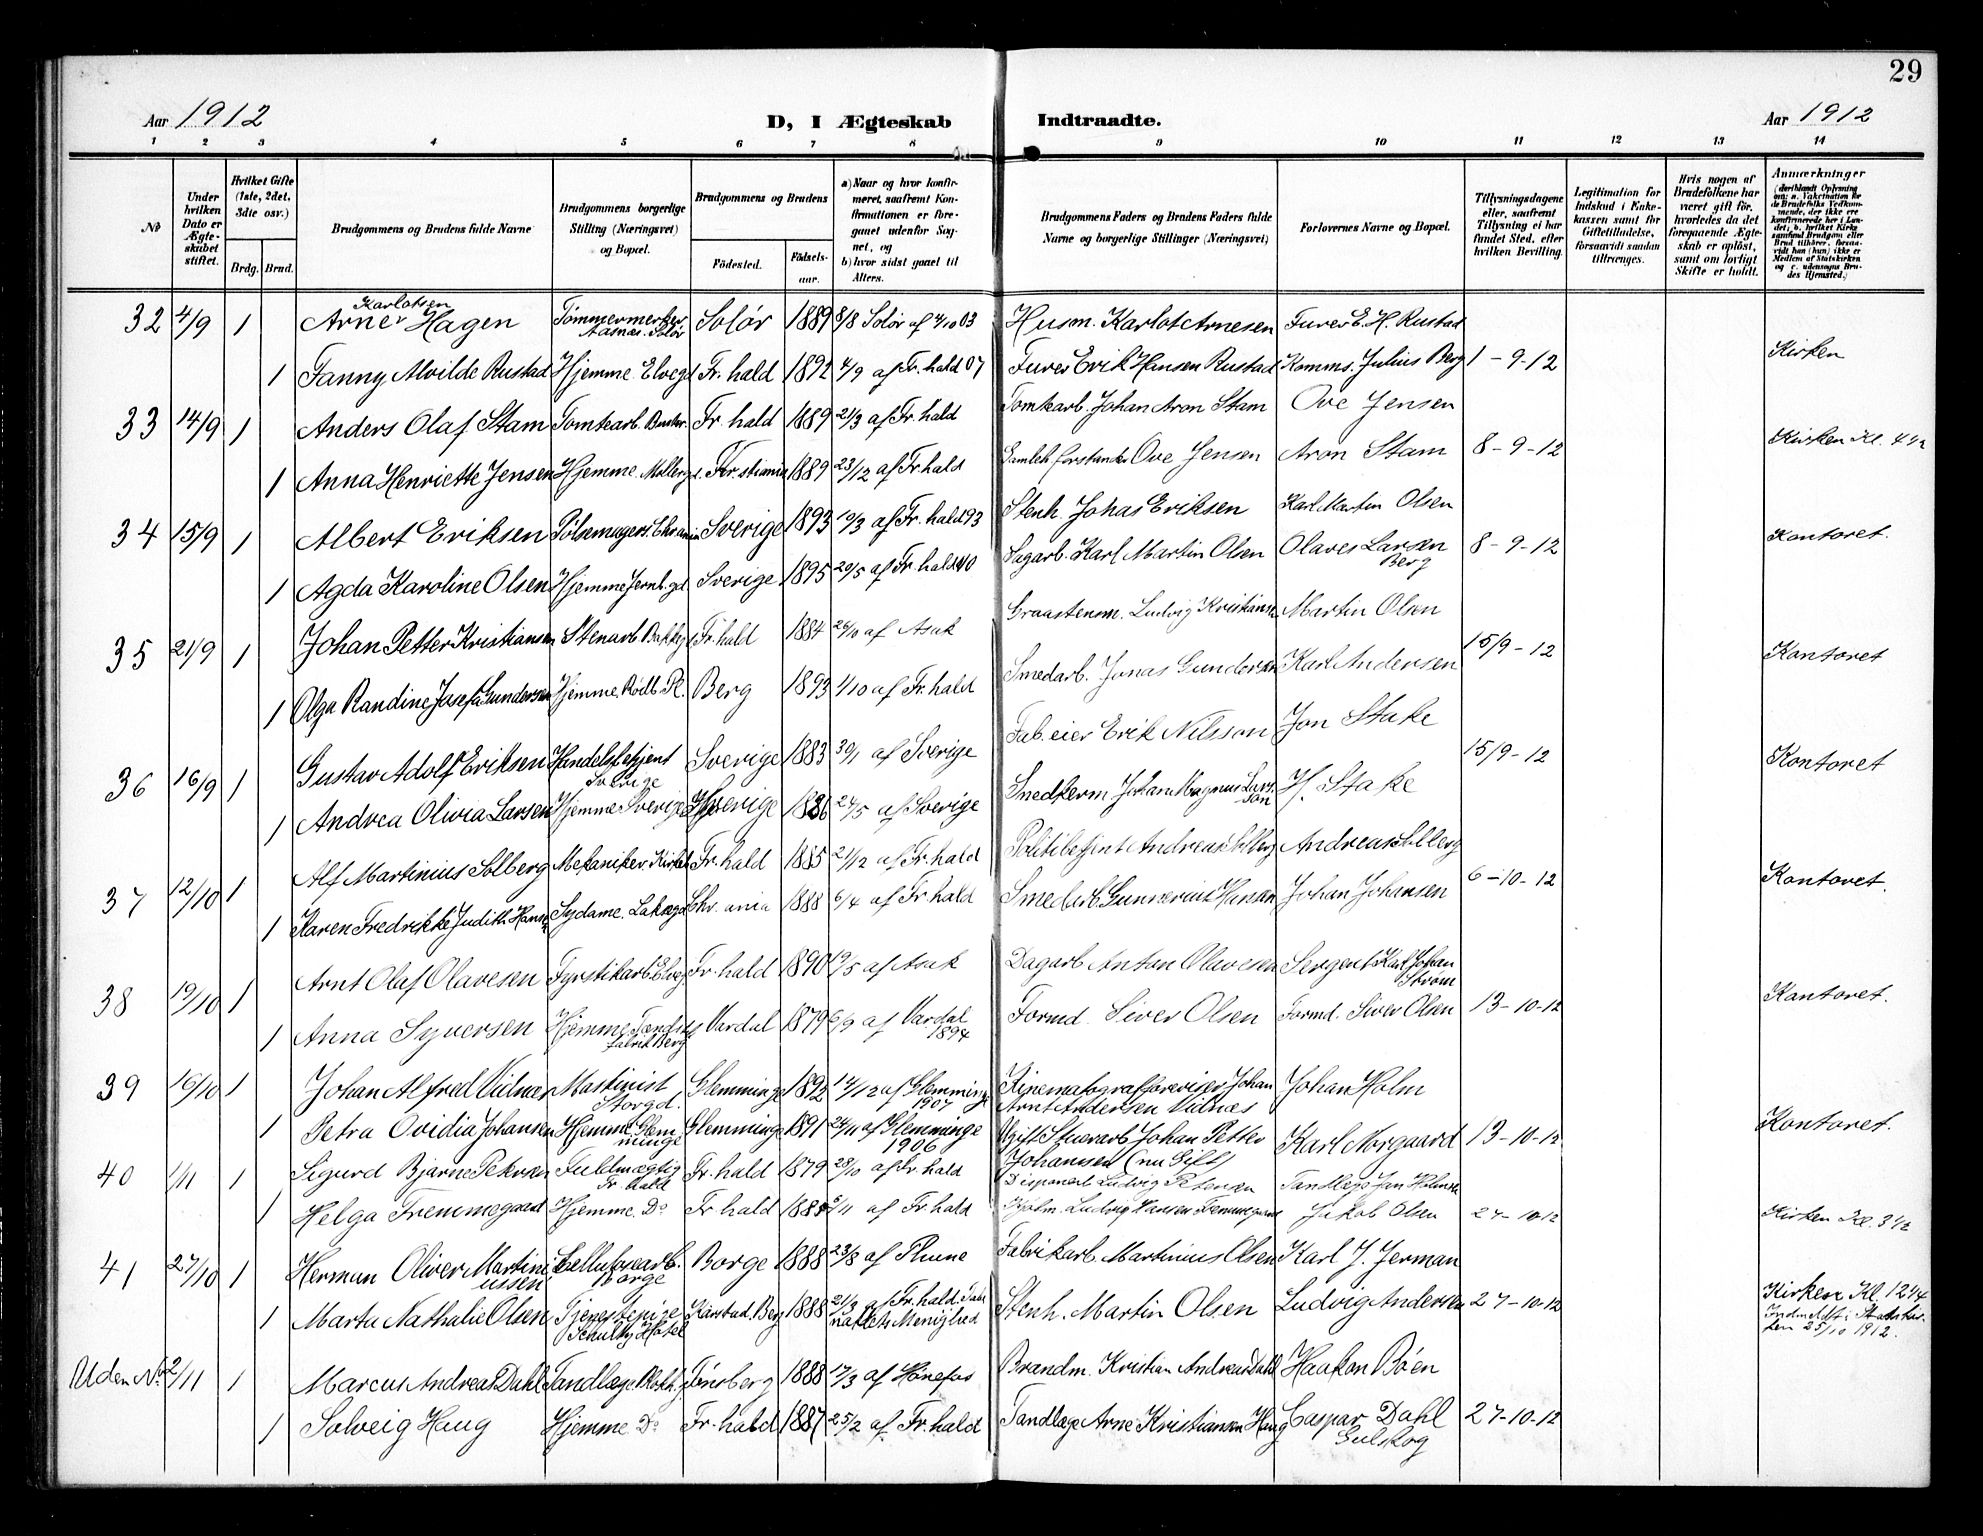 29
Aar 1912 D, I Ægteskab Indtraadte. Aar 1912
1 2 3 4 5 6 7 8 9 10 11 12 13 14
№
Under hvilken Dato er Ægteskabet stiftet.
Hvilket Gifte (1ste, 2det, 3dte osv.)
Brdg. Brud.
Brudgommens og Brudens fulde Navne
Brudgommens borgerlige Stilling (Næringsvei) og Bopæl.
Brudgommens og Brudens
Födested. Födselsaar.
a) Naar og hvor konfirmeret, saafremt Konfirmationen er foregaaet udenfor Sognet, og
b) hvor sidst gaaet til Alters.
Brudgommens Faders og Brudens Faders fulde Navne og borgerlige Stillinger (Næringsvei)
Forlovernes Navne og Bopæl.
Tillysningsdagene eller, saafremt Tillysning ei har fundet Sted, efter hvilken Bevilling.
Legitimation for Indskud i Enkekassen samt for Giftetilladelse, forsaavidt saadan tiltrænges.
Hvis nogen af Brudefolkene har været gift för, hvorledes da det foregaaende Ægteskab er oplöst, samt om lovligt Skifte er holdt.
Anmærkninger
32 4/9 1 Arne Karlotsen Hagen Tömmermerker Aasnæs. Solör Solör 1889 8/8 Solör af 4/10 03 Husm. Karlot Arnesen Furer E. H. Rustad
1 Fanny Alvilde Rustad Hjemme. Elvegd Fr. hald 1892 4/9 af Fr. hald 07 Furer Erik Hansen Rustad Komms. Julius Berg 1-9-12 Kirken
33 14/9 1 Anders Olaf Stam Tomtearb. Fr. hald 1889 21/3 af Fr. hald Tomtearb. Johan Aron Stam Ove Jensen
1 Anna Henriette Jensen Hjemme 1889 23/12 af Fr. hald Ove Jensen Aron Stam 8-9-12 Kirken Kl. 4 1/2
34 15/9 1 Albert Eriksen Pölsemager. Sverige 1893 19/3 af Fr. hald 93 Stenh. Johas Eriksen Karl Martin Olsen
1 Agda Karoline Olsen Hjemme Jernb. gd. Sverige 1895 20/5 af Fr. hald 10 Sagarb. Karl Martin Olsen Olaves Larsen Berg 8-9-12 Kontoret.
35 21/9 1 Johan Petter Kristiansen Stenarb Fr. hald 1884 26/10 af Asak Graastenm. Ludvig Kristiansen Martin Olsen
1 Olga Randine Josefa Gundersen Hjemme. Rödb. Pl. Berg 1893 1/10 af Fr. hald Smedarb. Jonas Gundersen Karl Andersen 15/9-12 Kontoret
36 16/9 1 Gustav Adolf Eriksen Handelsbetjent Sverige Sverige 1883 30/1 af Sverige Fab. eier Erik Nilsson Jon Stake
1 Andrea Olivia Larsen Hjemme Sverige Sverige 1886 24/5 af Sverige Snedkerm Johan Magnus Larsson H. Stake 15/9-12 Kontoret
37 12/10 1 Alf Martinius Solberg Mekaniker Fr. hald 1885 21/12 af Fr. hald Politibetjent Andreas Solberg Andreas Solberg
1 Karen Fredrikke Judith Hansen Sydame. Chr. ania 1888 6/4 af Fr. hald Smedarb. Gunnerius Hansen Johan Johansen 6-10-12 Kontoret.
38 19/10 1 Arnt Olaf Olavesen Fyrstikarb Elveg Fr. hald 1890 19/5 af Asak Dagarb Anton Olavesen Sergent Karl Johan Ström
1 Anna Syversen Hjemme fabrik Berg Vardal 1879 6/9 af Vardal 1894 Formd. Siver Olsen Formd. Siver Olsen 13-10-12 Kontoret.
39 19/10 1 Johan Alfred Vidnæs Maskinist Storgd. Glemminge 1892 14/12 af Glemminge 1907 Kinematografforeviser Johan Arnt Andersen Vidnæs Johan Holm
1 Petra Ovidia Johansen Hjemme Glemminge Glemminge 1891 24/11 af Glemminge 1906 Ugift Stuerarb Johan Petter Johansen (nu Gift) Karl Norgaard 13-10-12 Kontoret.
40 1/11 1 Sigurd Bjarne Petersen Fuldmægtig Fr. hald Fr. hald 1879 28/10 af Fr. hald Disponent Ludvig Petersen Tandlæge Jan
1 Helga Fremmegaard Hjemme. Do Fr. hald 1885 6/11 af Fr. hald Ludvig Hansen Fremmegaard Jakob Olsen 27-10-12 Kirken Kl. 3 1/2
41 27/10 1 Herman Oliver Martiniussen Cellulosearb. Borge Borge 1888 23/8 af Thune Fabrikarb. Martinius Olsen Karl J. Jerman
1 Marta Nathalie Olsen Tjenestepige Schultz Hotel Karstad. Berg 1888 21/3 af Fr. hald Menighed Stenh. Martin Olsen Ludvig Andersen 27-10-12 Kirken Kl. 12 1/4
Indmeldt i Statskirken 25/10 1912.
Uden No 2/11 1 Marcus Andreas Dahl Tandlæge Tönsberg 1888 17/3 af Hönefos Brandm. Kristian Andreas Dahl Haakon Böen
1 Solveig Haug Hjemme Do Fr. hald 1887 25/2 af Fr. hald Tandlæge Arne Kristiansen Haug Caspar Dahl Gulskog 27-10-12